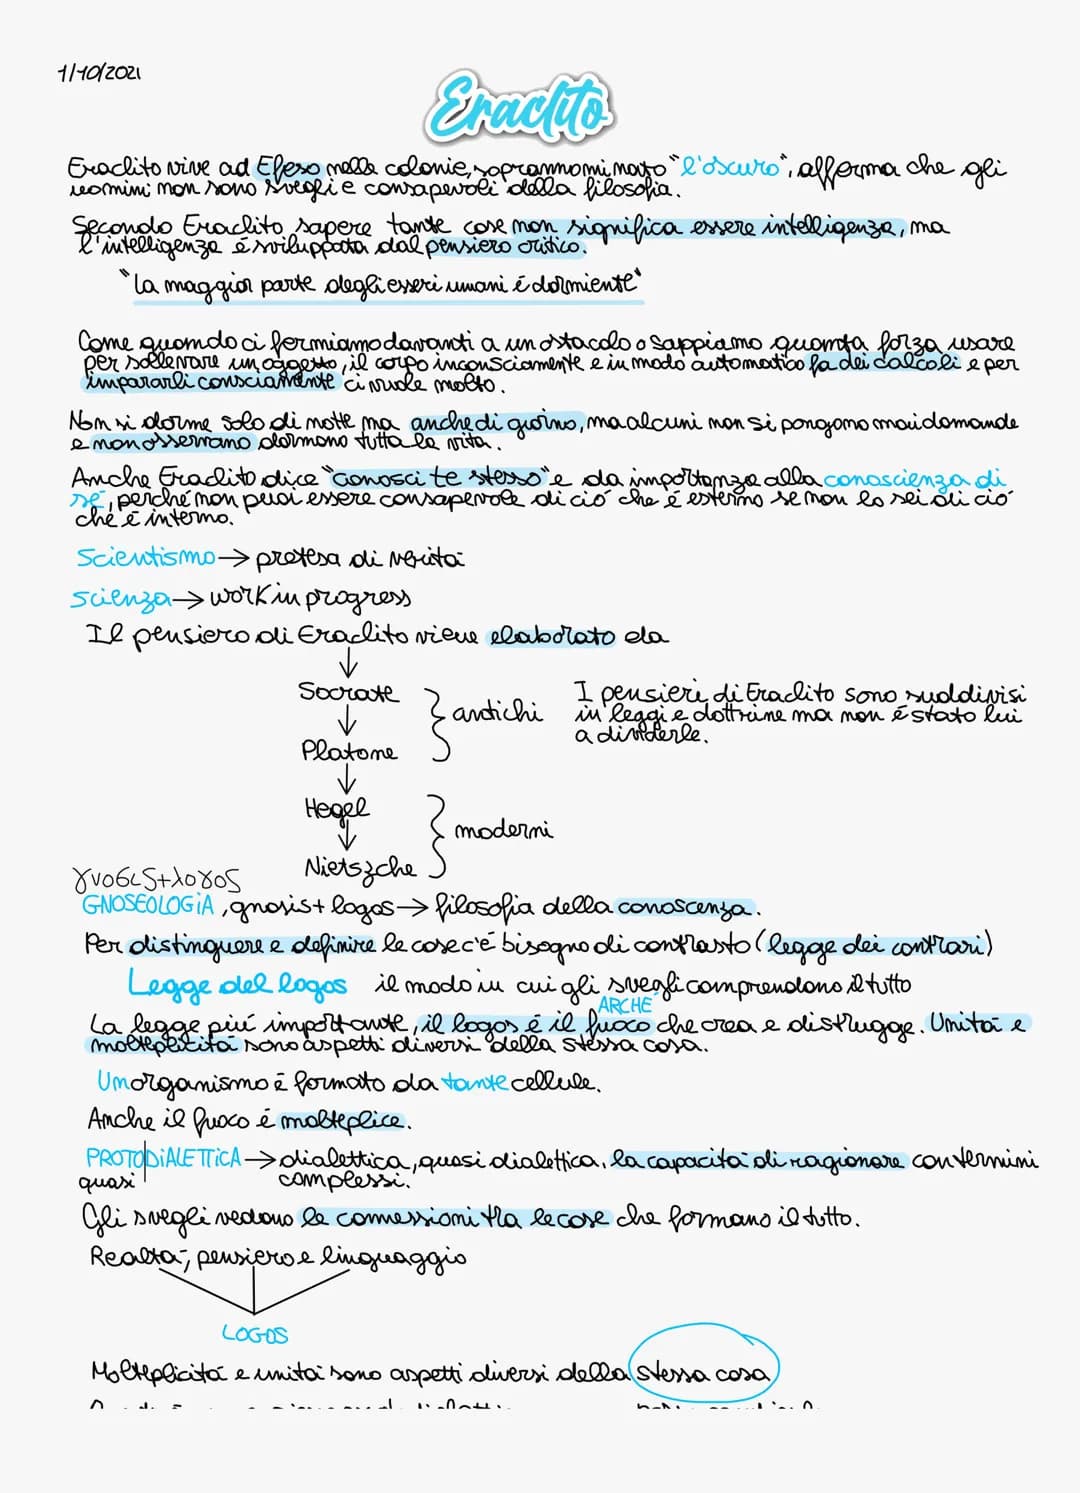 1/10/2021
Eraclito
Eraclito vive ad Efeso nelle colonie, soprannominato "l'oscuro", afferma che gli
uomini non sono svegli e consapevoli della filosofia.
Secondo Eraclito sapere tante cose non significa essere intelligenza, ma
l'intelligenza é sviluppata dal pensiero critico.
"La maggior parte degli esseri umani é dormiente"
Come quando ci fermiamo davanti a un ostacolo o sappiamo quanta forza usare
per sollevare un oggetto, il corpo inconsciamente e in modo automatico fa dei calcoli e per
impararli consciamente ci vuole molto.
Non si dorme solo di notte ma anche di giorno, ma alcuni non si pongono mai domande
e non osservano dormono tutta la vita.
Anche Eraclito dice "conosci te stesso" e da importanza alla conoscienza di
sé, perché non puoi essere consapevole di ció che é esterno se non lo sei di ció
che é interno.
Scientismo → pretesa di verità
scienza → work in progress
Il pensiero di Eraclito viene elaborato da
↓
Socrate
↓
Platone
antichi
I pensieri di Eraclito sono suddivisi
in leggi e dottrine ma non é stato lui
a dividerle.
↓
Hegel
↓
Nietszche
moderni
γνοσις+λογος
GNOSEOLOGiA, gnosis + logos → filosofia della conoscenza.
Per distinguere e definire le cose c'é bisogno di contrasto (legge dei contrari)
Legge del logos il modo in cui gli svegli comprendono il tutto
ARCHÉ
La legge piú importante, il logos é il fuoco che crea e distrugge. Unità e
molteplicità sono aspetti diversi della stessa cosa.
Un organismo é formato da tante cellule.
Anche il fuoco é molteplice.
PROTO|DiALETTiCA → dialettica, quasi dialettica, la capacità di ragionare con termini
quasi complessi.
Gli svegli vedono le connessioni tra le cose che formano il tutto.
Realtà, pensiero e linguaggio
LOGOS
Molteplicità e unità sono aspetti diversi della stessa cosa